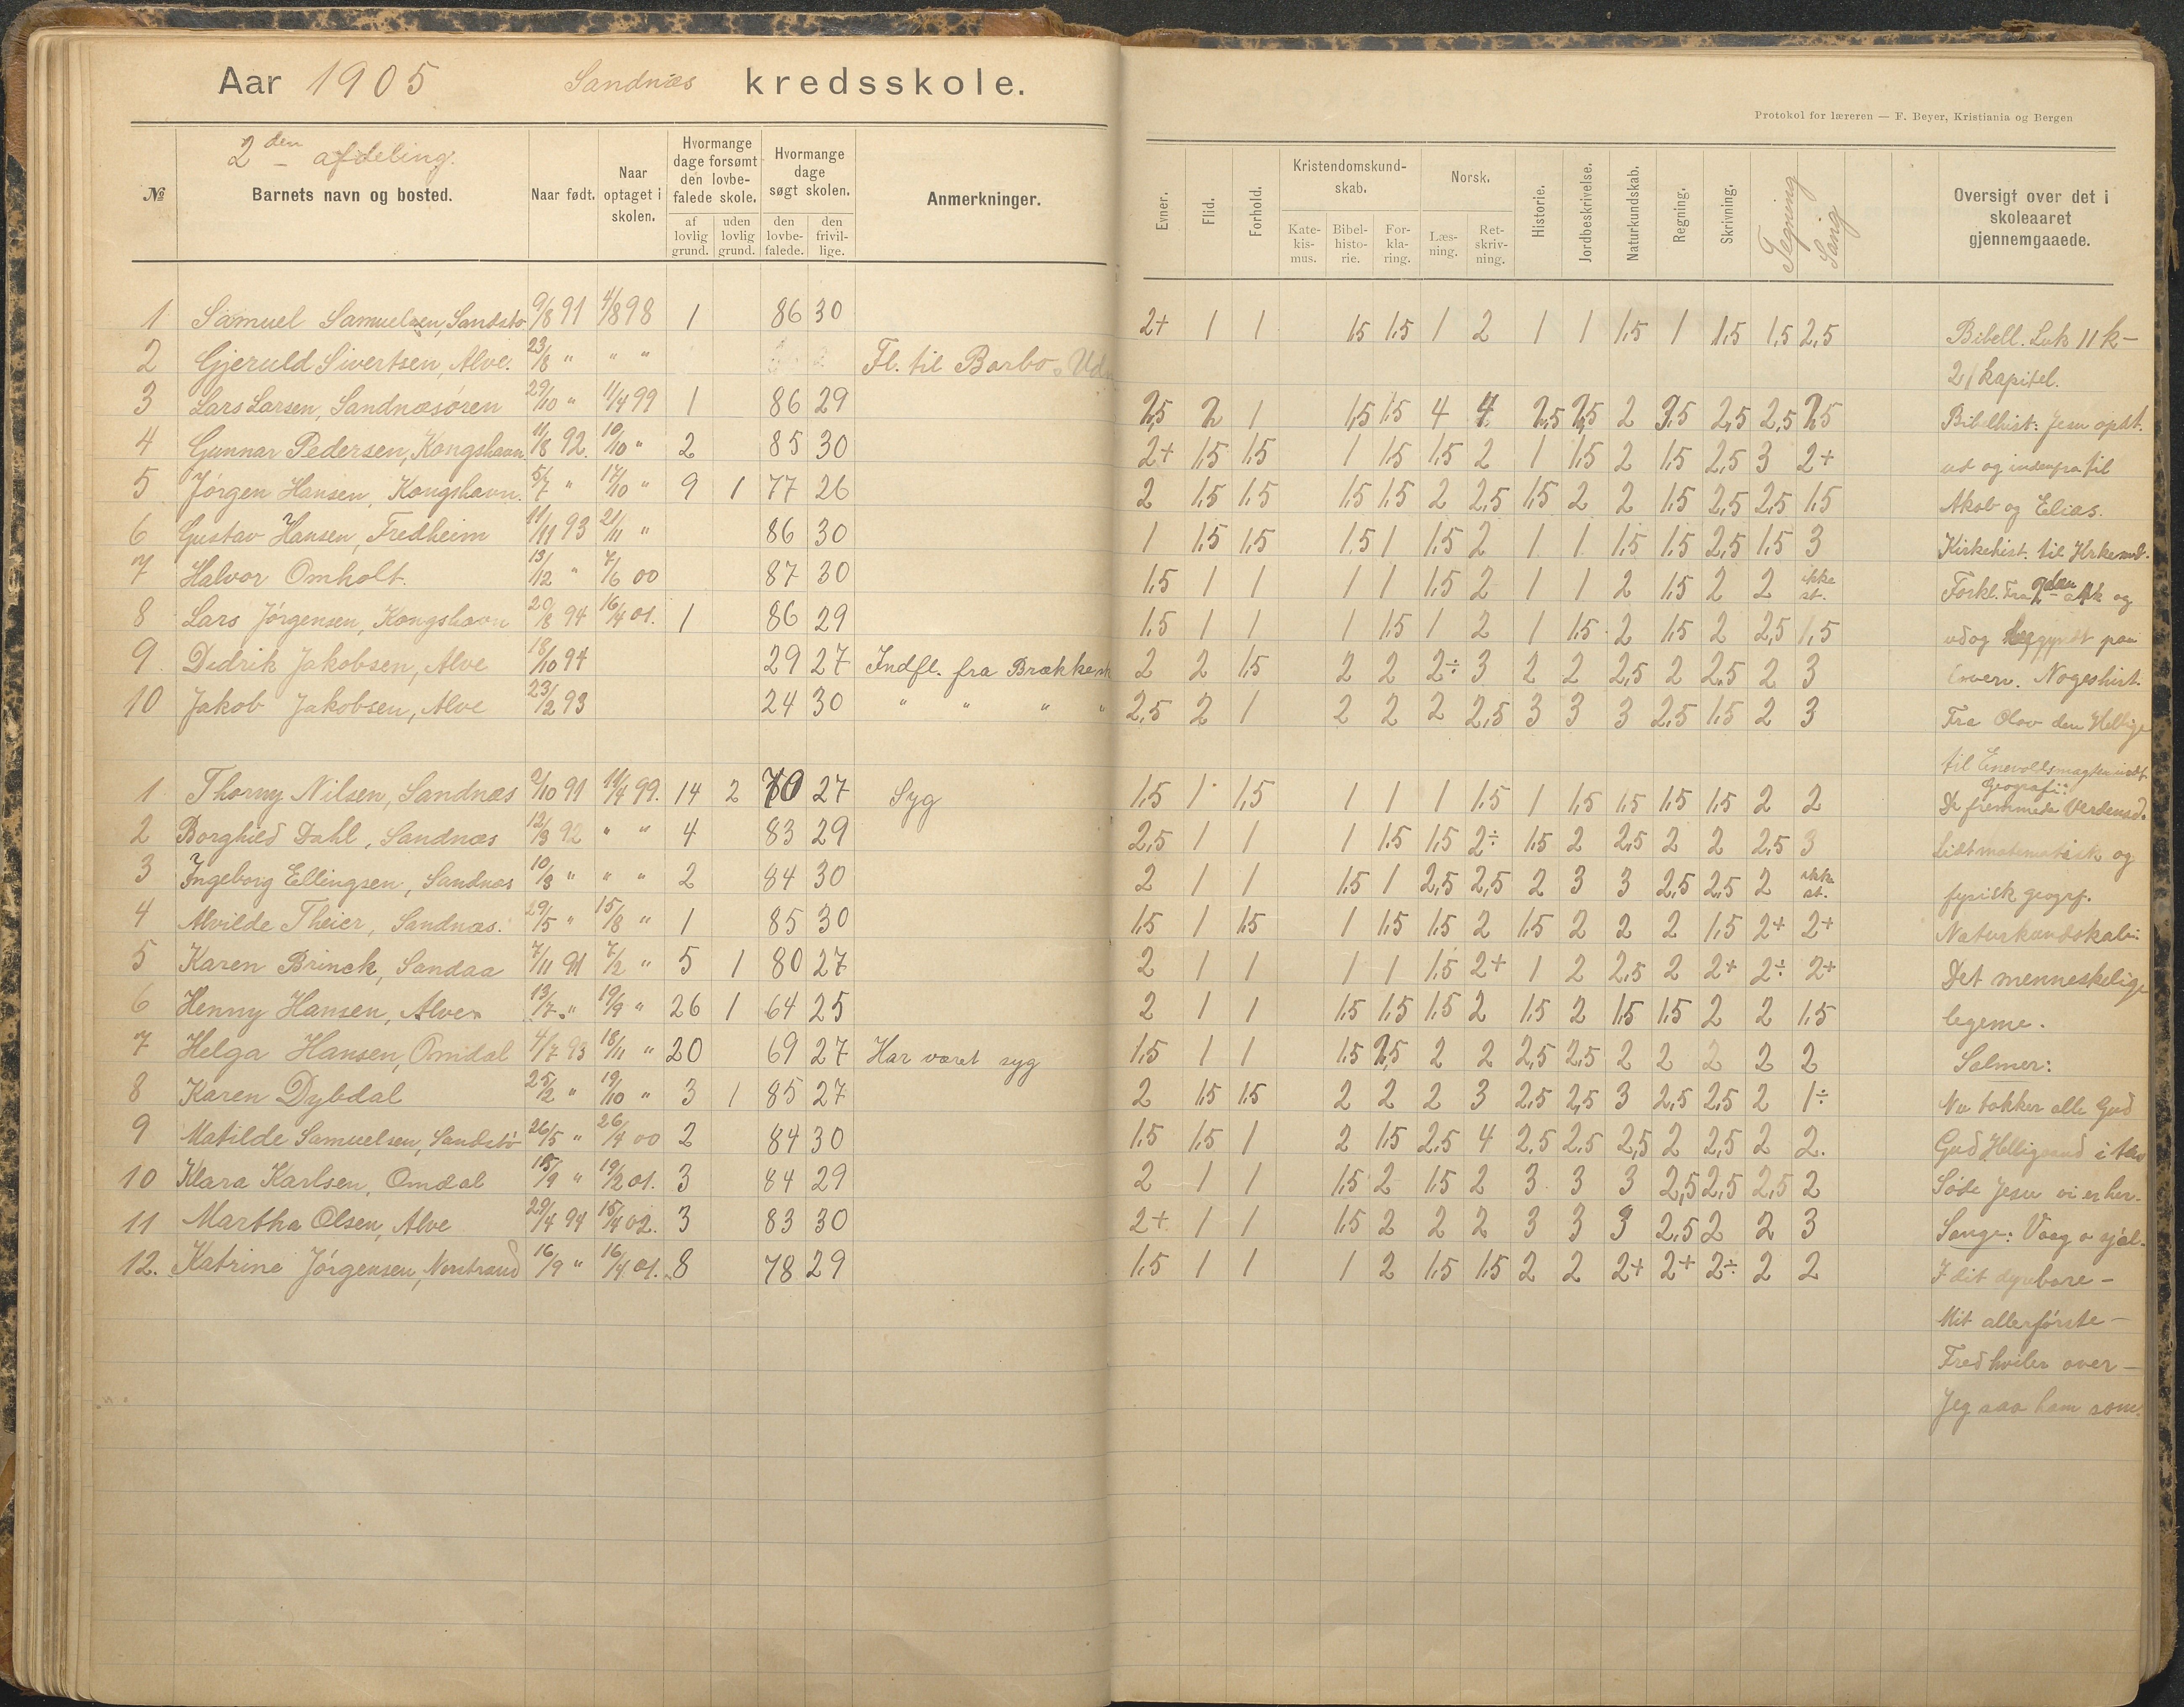 Aar 1905 Sandnæs kredsskole.
Protokol for læreren — F. Beyer, Kristiania og Bergen
2den afdeling.
№ Barnets navn og bosted. Naar født. Naar optaget i skolen. Hvormange dage forsømt den lovbefalede skole. af lovlig grund. uden lovlig grund. Hvormange dage søgt skolen. den lovbefalede. den frivillige. Anmerkninger.
Evner. Flid. Forhold. Kristendomskundskab. Katekismus. Bibelhistorie. Forklaring. Norsk. Læsning. Retskrivning. Historie. Jordbeskrivelse. Naturkundskab. Regning. Skrivning. Tegning Sang Oversigt over det i skoleaaret gjennemgaaede.
1 Samuel Samuelsen, Sandstø 9/8 91 4/8 98 1 86 30 2+ 1 1 1,5 1,5 1 2 1 1 1,5 1 1,5 1,5 2,5 Bibell. Luk 11 k—
2 Gjeruld Sivertsen, Alve. 23/8 " " " Fl. til Barbo 21 kapitel.
3 Lars Larsen, Sandnæsøren 29/10 " 11/4 99 1 86 29 2,5 2 1 1,5 1,5 4 4 2,5 2,5 2 3,5 2,5 2,5 2,5 Bibelhist: Jesu opst.
4 Gunnar Pedersen, Kongshavn 11/8 92. 10/10 " 2 85 30 2+ 1,5 1,5 1 1,5 1,5 2 1 1,5 2 1,5 2,5 3 2+ ud og indenfra til
5 Jørgen Hansen, Kongshavn. 5/7 " 17/10 " 9 1 77 26 2 1,5 1,5 1,5 1,5 2 2,5 1,5 2 2 1,5 2,5 2,5 1,5 Akab og Elias.
6 Gustav Hansen, Fredheim 11/11 93 21/11 " 86 30 1 1,5 1,5 1,5 1 1,5 2 1 1 1,5 1,5 2,5 1,5 3 Kirkehist. til
7 Halvor Omholt. 13/12 " 7/6 00 87 30 1,5 1 1 1 1 1,5 2 1 1 2 1,5 2 2 ikke st. Forkl. Fra 2den og
8 Lars Jørgensen, Kongshavn 20/8 94 16/4 01. 1 86 29 1,5 1 1 1 1,5 1 2 1 1,5 2 1,5 2 2,5 1,5 ud og begyndt paa
9 Didrik Jakobsen, Alve 18/10 94 29 27 Indfl. fra Brække 2 2 1,5 2 2 2÷ 3 2 2 2,5 2 2,5 2 3 Nogeshist.
10 Jakob Jakobsen, Alve 23/2 93 24 30 " " " " 2,5 2 1 2 2 2 2,5 3 3 3 2,5 1,5 2 3 Fra Olav den Hellige
til
1 Thorny Nilsen, Sandnæs 2/10 91 11/4 99. 14 2 70 27 Syg 1,5 1 1,5 1 1 1 1,5 1 1,5 1,5 1,5 1,5 2 2 Geografi: De fremmede Verdensd.
2 Borghild Dahl, Sandnæs 12/3 92 " " 4 83 29 2,5 1 1 1 1,5 1,5 2÷ 1,5 2 2,5 2 2 2,5 3 Lidt matematisk og
3 Ingeborg Ellingsen, Sandnæs 10/8 " " " 2 84 30 2 1 1 1,5 1 2,5 2,5 2 3 3 2,5 2,5 2 ikke st. fysisk geogrf.
4 Alvilde Theier, Sandnæs. 29/5 " 15/8 " 1 85 30 1,5 1 1,5 1 1,5 1,5 2 1,5 2 2 2 1,5 2+ 2+ Naturkundskab:
5 Karen Brinck, Sandaa 7/11 91 7/2 " 5 1 80 27 2 1 1 1 1 1,5 2+ 1 2 2,5 2 2+ 2÷ 2+ Det menneskelige
6 Henny Hansen, Alve 13/7 " 19/9 " 26 1 64 25 2 1 1 1,5 1,5 1,5 2 1,5 2 1,5 1,5 2 2 1,5 legeme.
7 Helga Hansen, Omdal 4/7 93 18/11 " 20 69 27 Har været syg 1,5 1 1 1,5 2,5 2 2 2,5 2,5 2 2 2 2 2 Salmer:
8 Karen Dybdal 25/2 " 19/10 " 3 1 85 27 2 1,5 1,5 2 2 2 3 2,5 2,5 3 2,5 2,5 2 1÷ Nu takker alle Gud
9 Matilde Samuelsen, Sandstø 26/5 " 26/4 00 2 84 30 1,5 1,5 1 2 1,5 2,5 4 2,5 2,5 2,5 2 2,5 2 2. Gud Helligaand i
10 Klara Karlsen, Omdal 15/9 " 19/2 01. 3 84 29 2 1 1 1,5 2 1,5 2 3 3 3 2,5 2,5 2,5 2 Søde Jesu vi er her.
11 Martha Olsen, Alve 29/4 94 15/4 02. 3 83 30 2+ 1 1 1,5 2 2 2 3 3 3 2,5 2 2 3 Sange: Vaag o sjæl.
12. Katrine Jørgensen, 16/9 " 16/4 01. 8 78 29 1,5 1 1 1 2 1,5 1,5 2 2 2+ 2+ 2÷ 2 2 I dit dyrebare —
Mit allerførste —
Fred hviler over —
Jeg saa ham som